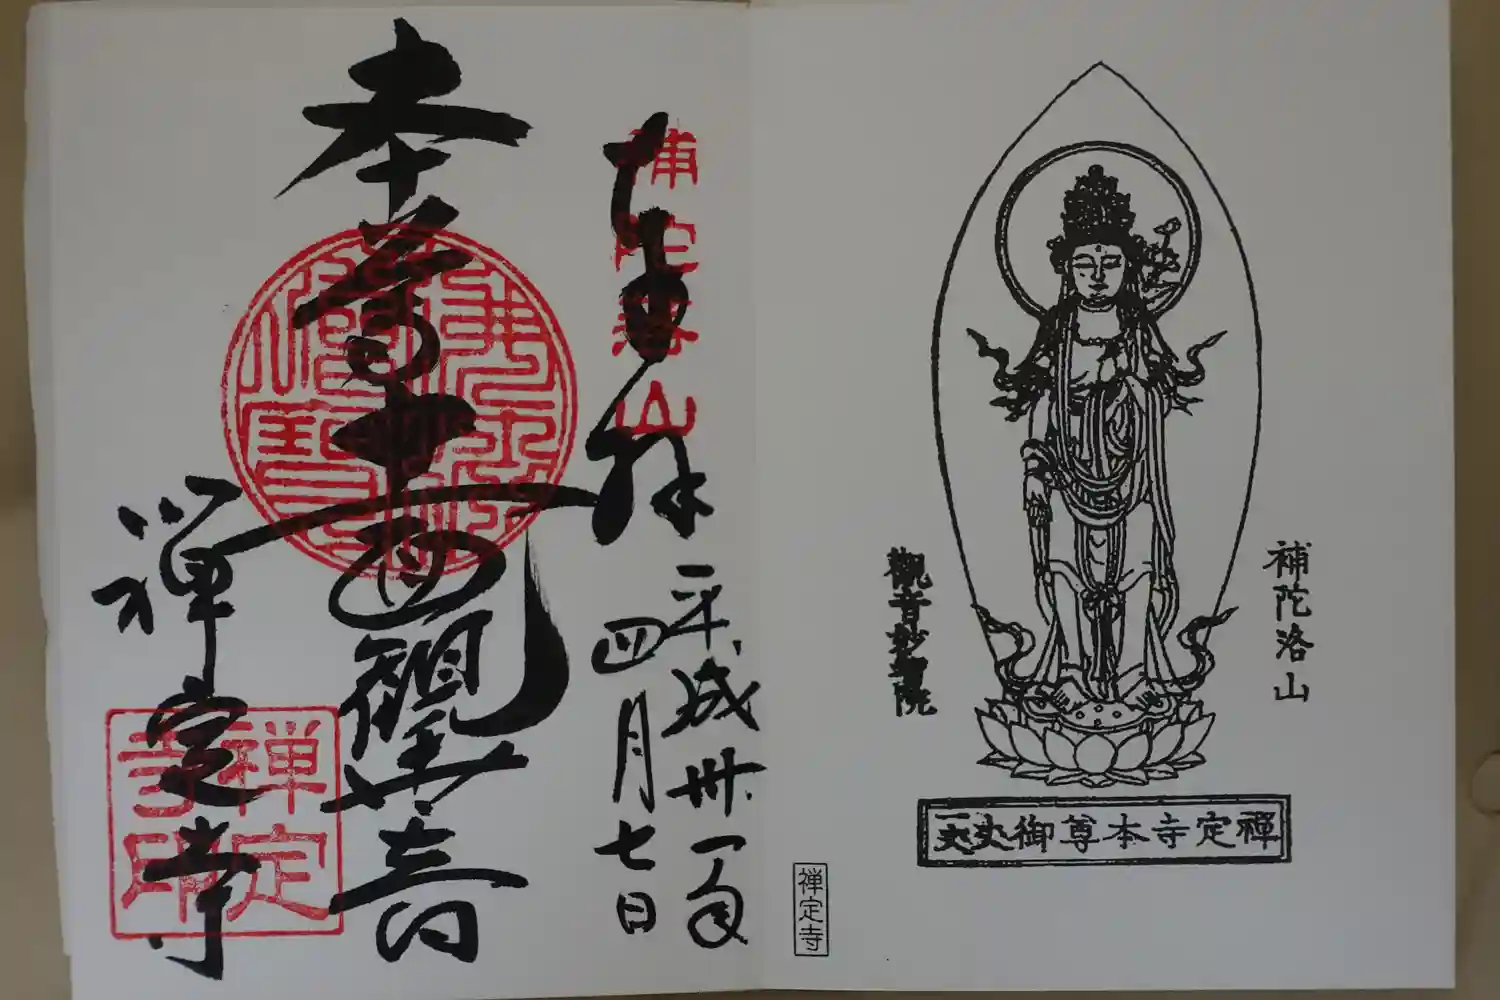 補陀洛山
觀音妙智院
禪定寺本尊御丈
禅定寺
補陀落山
奉拝
平成卅一年
四月七日
本尊十一面観世音
佛法僧寶
禅定寺
禅定寺印